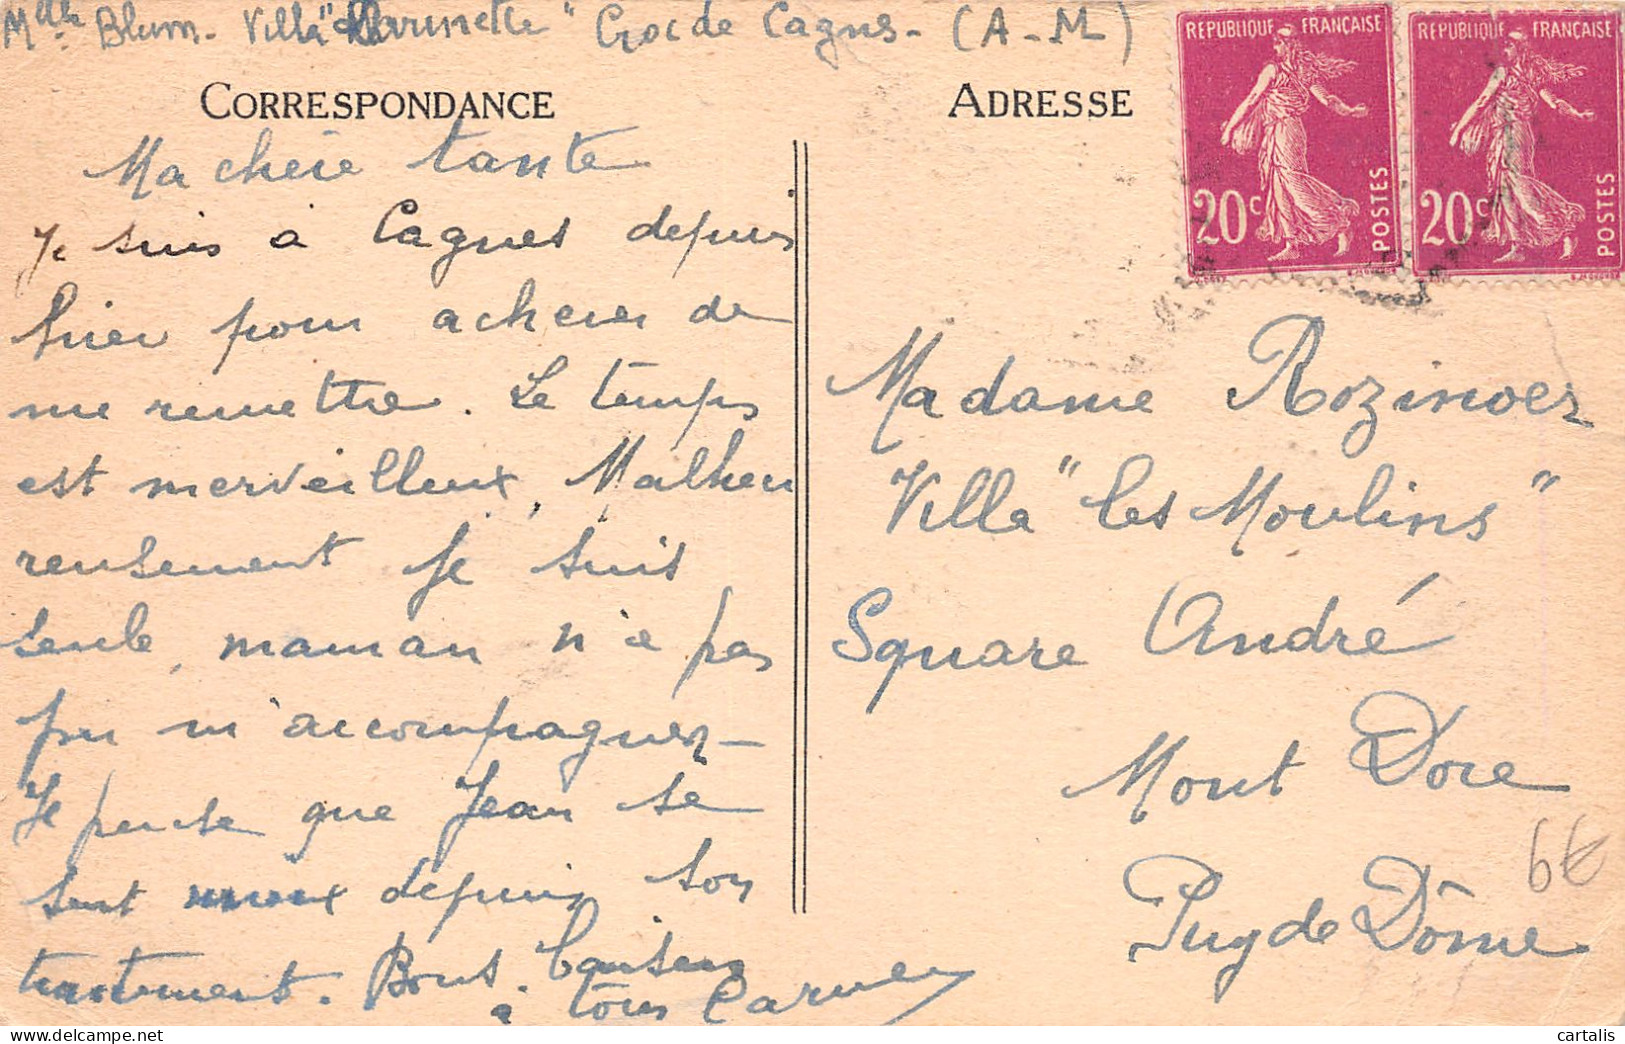 Mdlle Blum - Villa "Marinette" Cros de Cagnes - (A-M)
CORRESPONDANCE
Ma chère tante
Je suis à Cagnes depuis
hier pour achever de
me remettre. Le temps
est merveilleux, Malheu
reusement je suis
seule, maman n'a pas
pu m'accompagner -
Je pense que Jean se
sent mieux depuis son
traitement. Bons baisers
à tous Carmen
ADRESSE
REPUBLIQUE FRANÇAISE
20c
POSTES
REPUBLIQUE FRANÇAISE
20c
POSTES
Madame Rozinoer
Villa "les Moulins"
Square André
Mont Dore
Puy de Dôme
6€
cartalis